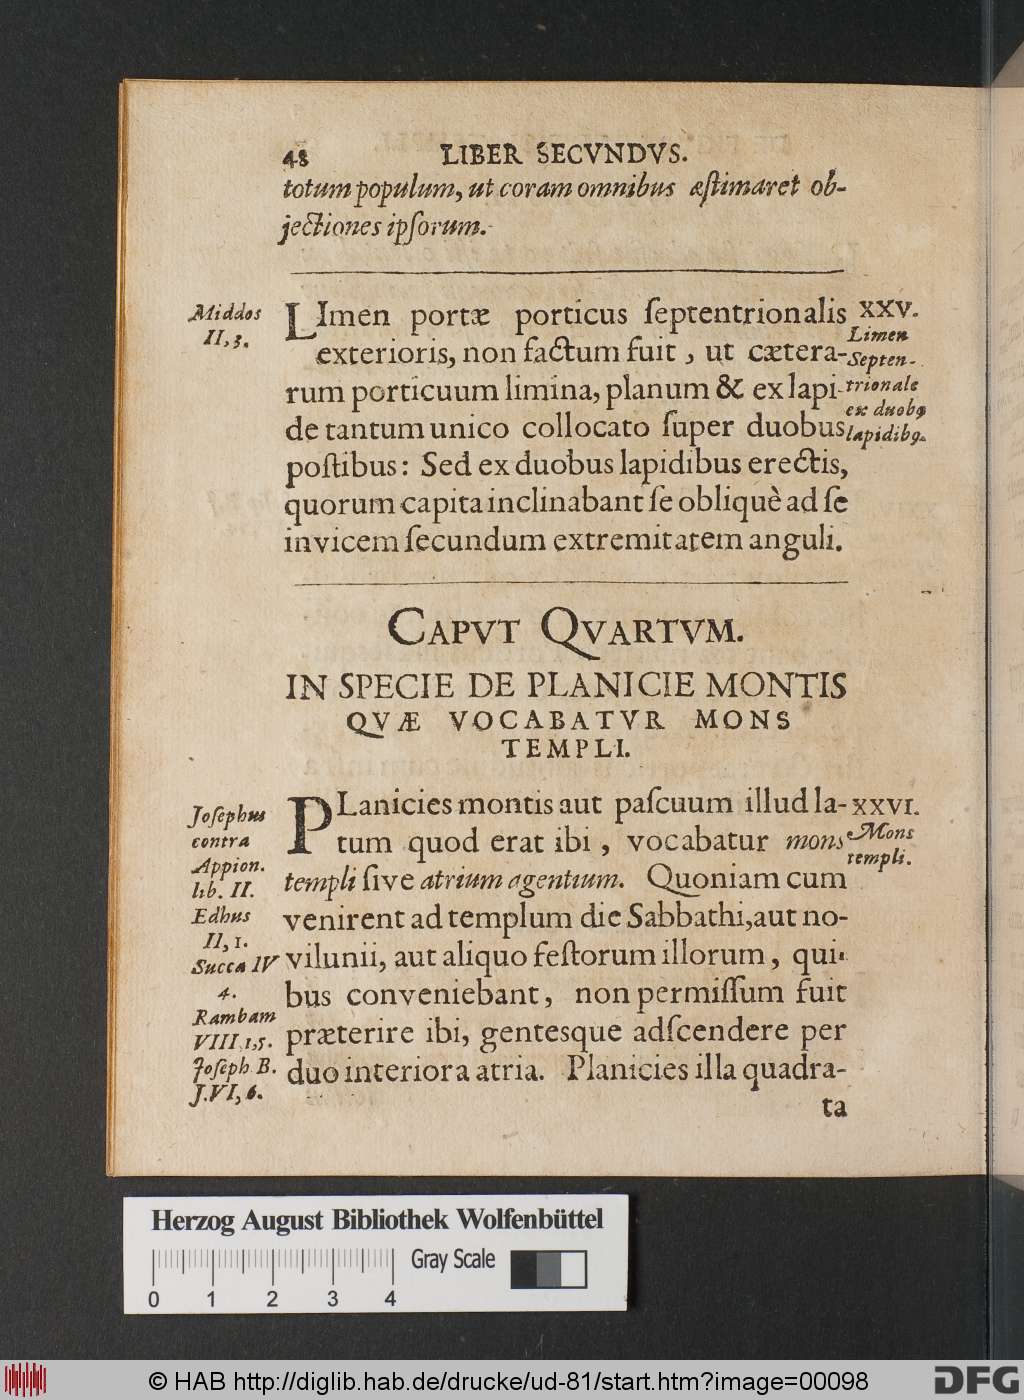 48 LIBER SECVNDVS.
totum populum, ut coram omnibus æſtimaret ob-
jectiones ipſorum.
Middos
II, 3.
LImen portæ porticus ſeptentrionalis
exterioris, non factum fuit, ut cætera-
rum porticuum limina, planum & ex lapi-
de tantum unico collocato ſuper duobus
poſtibus: Sed ex duobus lapidibus erectis,
quorum capita inclinabant ſe obliquè ad ſe
invicem ſecundum extremitatem anguli.
XXV.
Limen
Septen-
trionale
ex duobꝯ
lapidibꝯ.
CAPVT QVARTVM.
IN SPECIE DE PLANICIE MONTIS
QVÆ VOCABATVR MONS
TEMPLI.
Joſephus
contra
Appion.
lib. II.
Edhus
II, 1.
Succa IV
4.
Rambam
VIII, 1, 5.
Joſeph B.
J. VI, 6.
PLanicies montis aut paſcuum illud la-
tum quod erat ibi, vocabatur mons
templi ſive atrium agentium. Quoniam cum
venirent ad templum die Sabbathi, aut no-
vilunii, aut aliquo feſtorum illorum, qui-
bus conveniebant, non permiſſum fuit
præterire ibi, gentesque adſcendere per
duo interiora atria. Planicies illa quadra-
ta
XXVI.
Mons
templi.
Herzog August Bibliothek Wolfenbüttel
Gray Scale
0 1 2 3 4
© HAB http://diglib.hab.de/drucke/ud-81/start.htm?image=00098
DFG